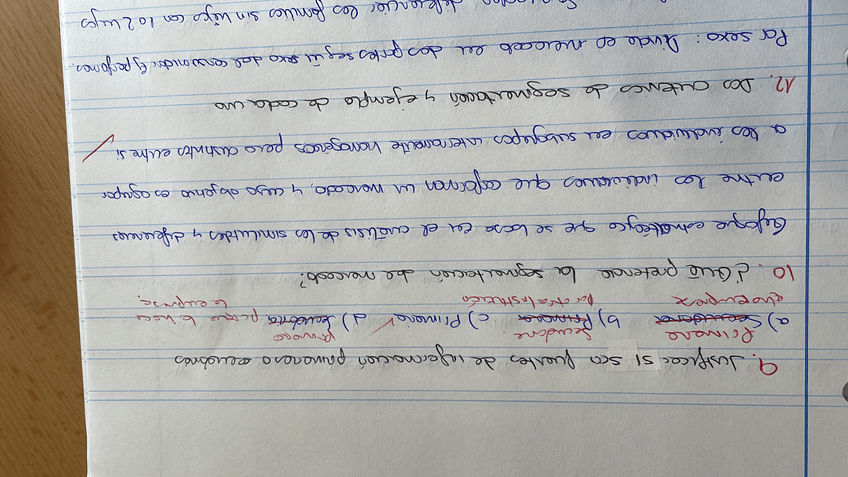 9. Justificar si son fuentes de información primarias o secundarias
Primaria Secundaria Primaria
a) Secundaria b) Primaria c) Primaria d) Secundaria porque lo hace
otra empresa la empresa
10. ¿Qué pretende la segmentación de mercado?
Enfoque estratégico que se basa en el análisis de las similitudes y diferencias
entre los individuos que conforman un mercado, y cuyo objetivo es agrupar
a los individuos en subgrupos internamente homogéneos pero distintos entre sí.
12. Dos criterios de segmentación y ejemplo de cada uno
Por sexo: Divide en mercado en dos partes según sexo del consumidor. Ej perfumes.
las familias sin hijos con 10 2 hijos